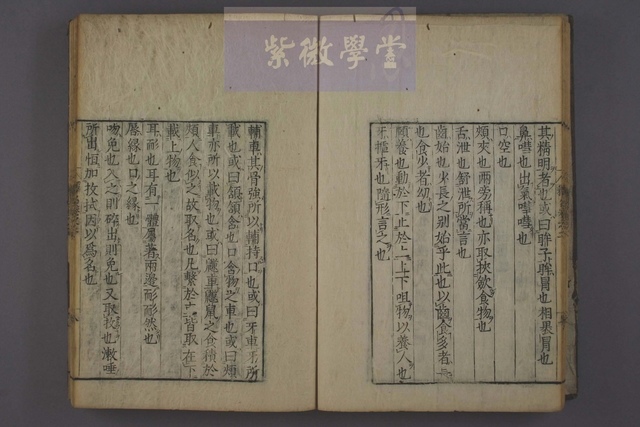 紫微學堂
其精明者也或曰眸子眸冒也相裹冒也
鼻嘒也出氣嘒嘒也
口空也
頰夾也兩旁稱也亦取挾斂食物也
舌泄也舒泄所當言也
齒始也少長之别始乎此也以齒食多者長
也食少者幼也
頤養也動於下止於上上下咀物以養人也
牙樝牙也隨形言之也
輔車其骨強所以輔持口也或曰牙車牙所
載也或曰頷頷含也口含物之車也或曰頰
車亦所以載物也或曰鼸車鼸鼠之食積於
頰人食似之故取名也凡繫於車皆取在下
載上物也
耳耏也耳有一體屬著兩邊耏耏然也
脣緣也口之緣也
吻免也入之則碎出則免也又取抆也漱唾
所出恒加抆拭因以爲名也